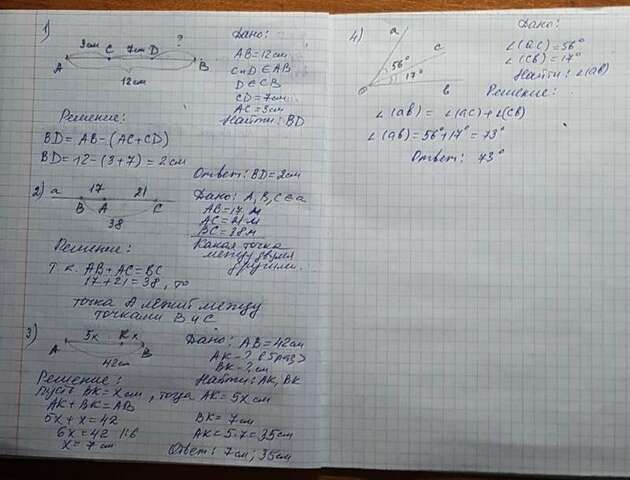 1)
3см C 7см D ?
A B
12см
Дано:
AB=12см
C и D ∈ AB
D ∈ CB
CD=7см
AC=3см
Найти: BD
Решение:
BD = AB-(AC+CD)
BD=12-(3+7)=2см
Ответ: BD=2см
2) a 17 21
B A C
38
Дано: A, B, C ∈ a
AB=17 м
AC=21 м
BC=38м
Какая точка
между двумя
другими.
Решение:
Т.к. AB+AC=BC
17+21=38, то
точка A лежит между
точками B и C
3) 5x K x
A B
42см
Дано: AB=42см
AK-? (5раз>
BK-? см
Найти: AK, BK
Решение:
пусть AK=Xсм, тоца AK=5xсм
AK+BK=AB
5x+x=42
6x=42 |:6
x=7см
BK=7см
AK=5·7=35см
Ответ: 7см; 35см
4) a
c
56°
17°
O b
Дано:
∠(ac)=56°
∠(cb)=17°
Найти: ∠(ab)
Решение:
∠(ab)= ∠(ac)+∠(cb)
∠(ab)=56°+17°=73°
Ответ: 73°